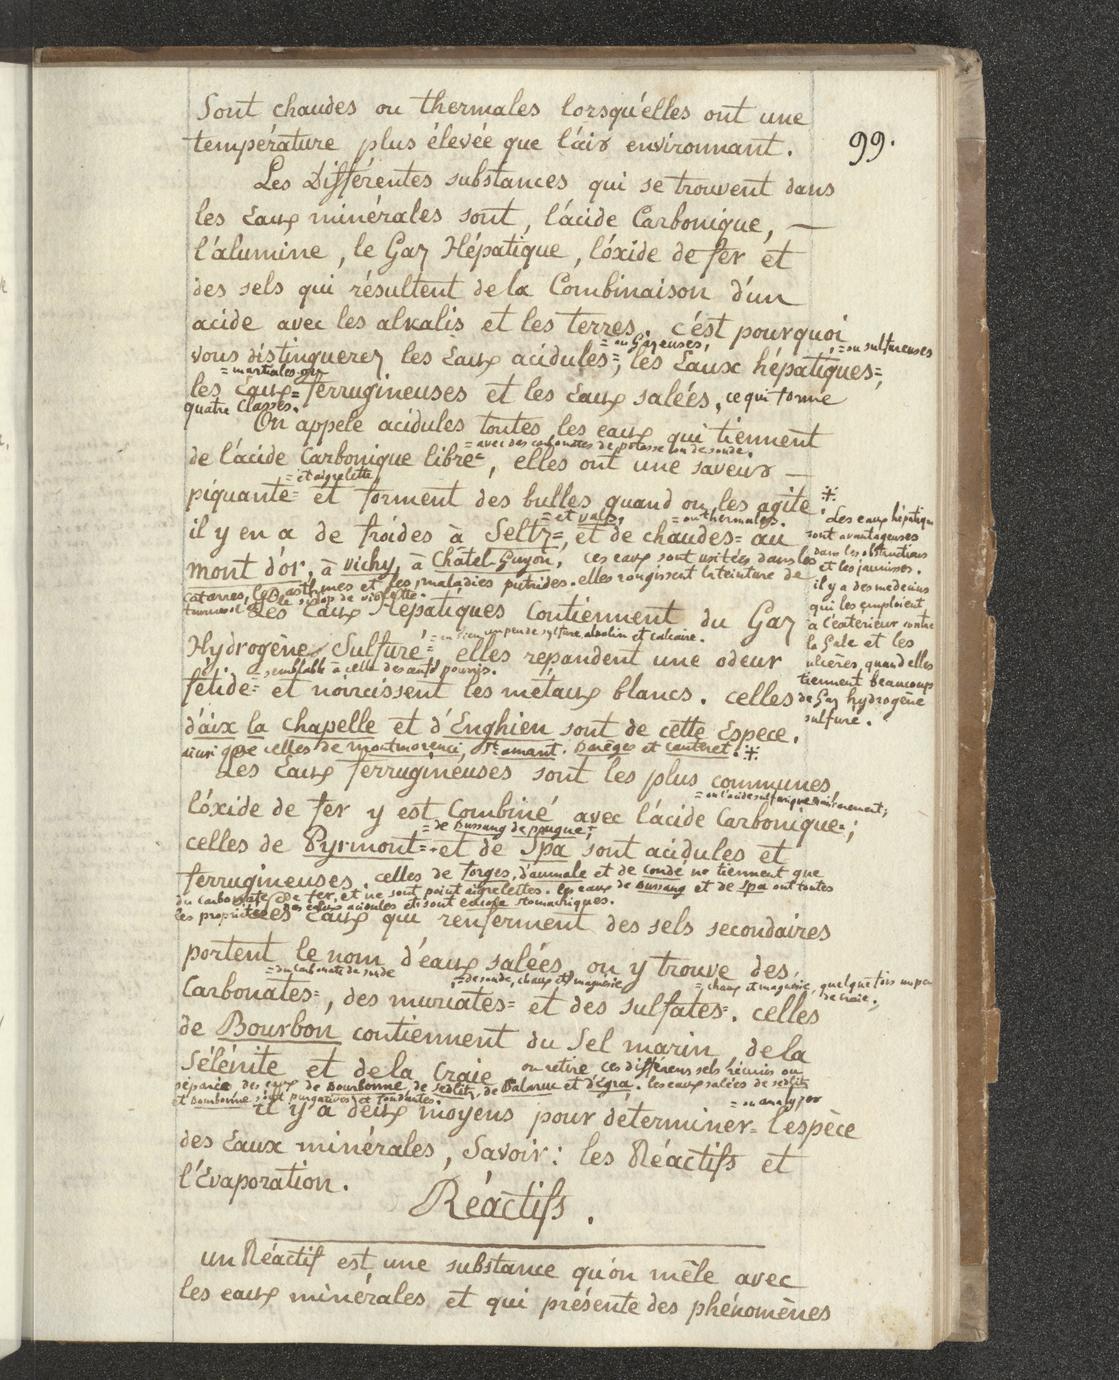 99.
Sont chaudes ou thermales lorsqu'elles ont une
température plus élevée que l'air environnant.
Les Différentes substances qui se trouvent dans
les Eaux minérales sont, l'ácide Carbonique, —
l'álumine, le Gaz Hépatique, l'óxide de fer et
des sels qui résultent de la Combinaison d'un
acide avec les alkalis et les terres. c'ést pourquoi
= ou Gazeuses, = ou sulfureuses
vous distinguerez les Eaux acidules=, les Eaux hépatiques=,
= martiales ou
les Eaux= ferrugineuses et les Eaux salées, ce qui forme
quatre Classes.
On appele acidules toutes les eaux qui tiennent
= avec des carbonates de potasse ou de soude.
de l'ácide Carbonique libre=, elles ont une saveur —
= et aigrelette,
piquante= et forment des bulles quand on les agite.
= et vals, = ou thermales.
il y en a de froides à Seltz=, et de chaudes= au
mont d'or, à vichy, à Châtel-Guyon, ces eaux sont usitées dans les
catarres, les asthmes et les maladies putrides. elles rougissent la teinture de
tournesol et le sirop de violette.
Les Eaux Hépatiques Contiennent du Gaz
= ou bien un peu de sulfure alcalin et calcaire.
Hydrogène Sulfuré= elles repandent une odeur
= semblable à celle des oeufs pourris.
fétide= et noircissent les métaux blancs. celles
d'aix la chapelle et d'Enghien sont de cette Espece.
ainsi que celles de montmorenci, St. amant, Barèges et cauteret. ⁜
⁜ Les eaux hépatiques
sont avantageuses
dans les obstructions
et les jaunisses.
il y a des médecins
qui les emploient
à l'éxtérieur contre
la Gale et les
ulcères, quand elles
tiennent beaucoup
de Gaz hydrogène
sulfuré.
Les Eaux ferrugineuses sont les plus communes,
= ou l'acide sulfurique
l'óxide de fer y est Combiné avec l'ácide Carbonique=;
= de Bussang de pougue;
celles de Pyrmont= et de Spa sont acidules et
ferrugineuses. celles de forges, d'aumale et de condé ne tiennent que
du carbonate de fer, et ne sont point aigrelettes. les eaux de Bussang et de Spa ont toutes
les propriétés des eaux acidules et sont encore stomachiques.
Les Eaux qui renferment des sels secondaires
portent le nom d'éaux salées, on y trouve des
= du carbonate de soude = de soude, chaux et magnésie = chaux et magnésie, quelque fois un peu
de craie.
Carbonates=, des muriates= et des sulfates=. celles
de Bourbon contiennent du Sel marin, de la
Sélénite et de la Craie on retire ces différens sels réunis ou
séparés des eaux de Bourbonne, de sedlitz, de Balaruc et d'Egra. les eaux salées de sedlitz
et Bourbonne sont purgatives et fondantes.
= ou analyser
il y a deux moyens pour déterminer= l'espèce
des Eaux minérales, Savoir: les Réactifs et
l'Evaporation.
Réactifs.
un Réactif est une substance qu'on mêle avec
les eaux minérales et qui présente des phénomènes